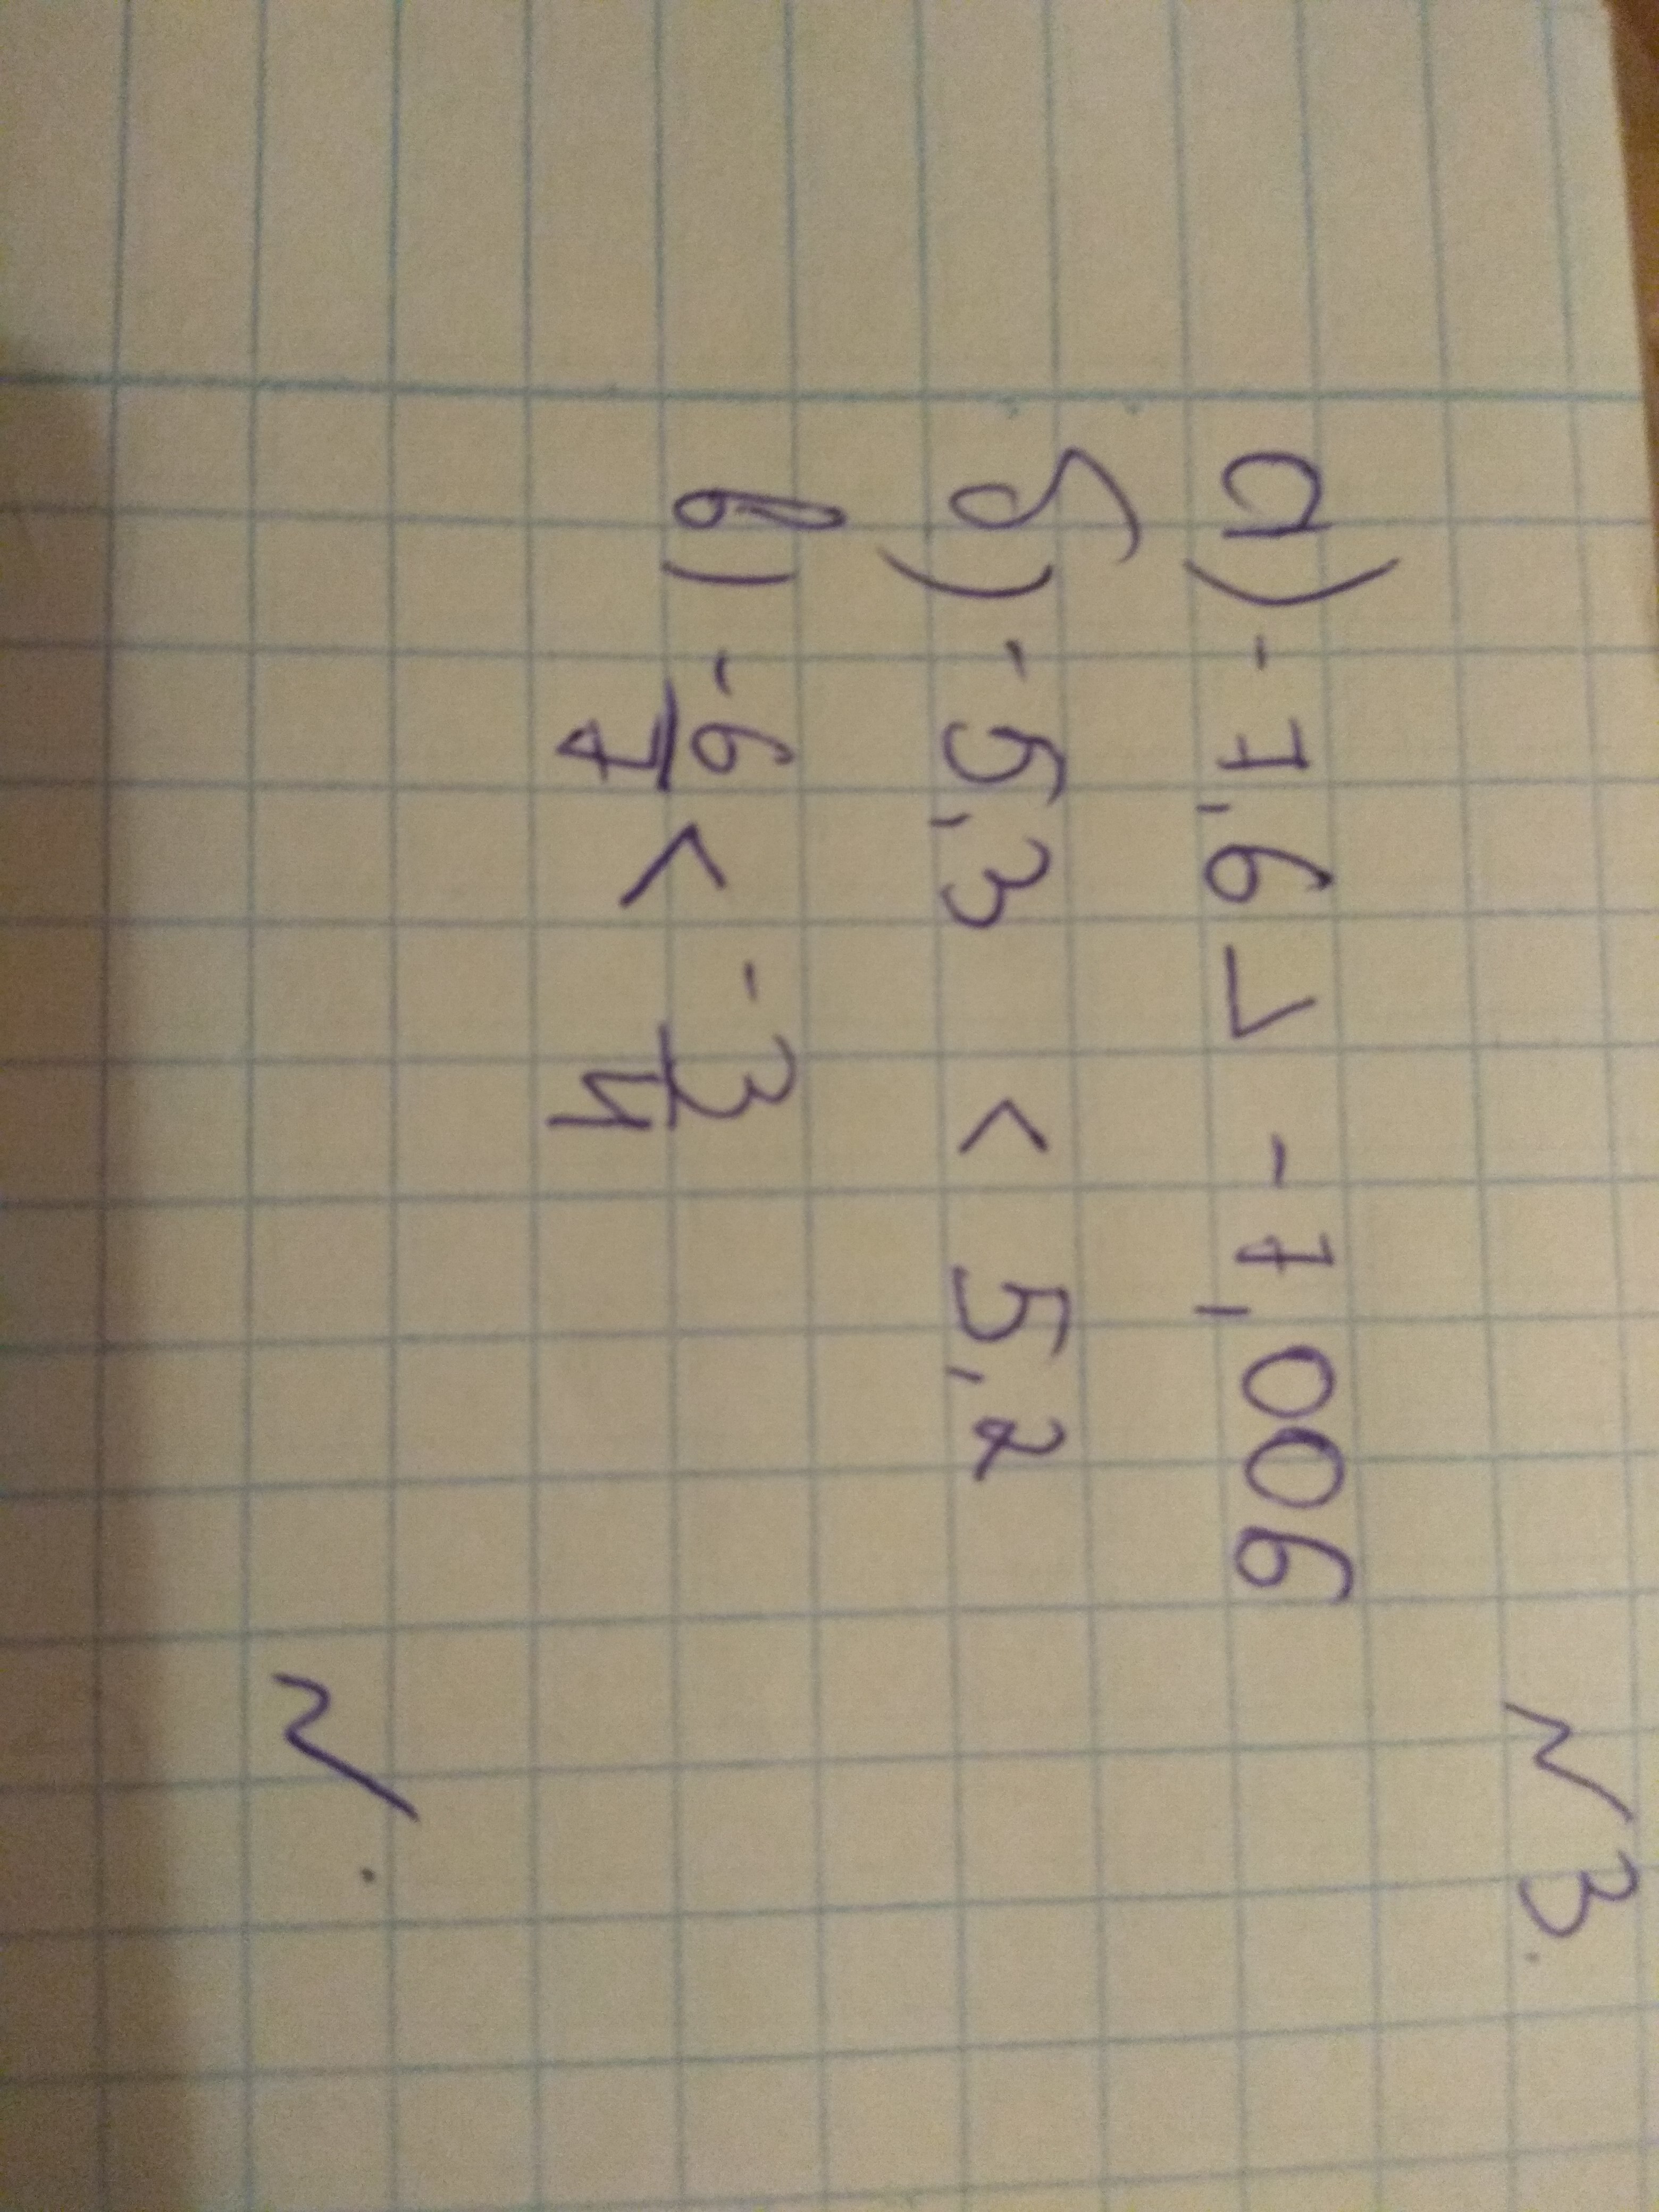 N 3.
а) - 7,6 > - 7,006
б) - 5,3 < 5,2
в) - 6/7 < - 3/4
N .